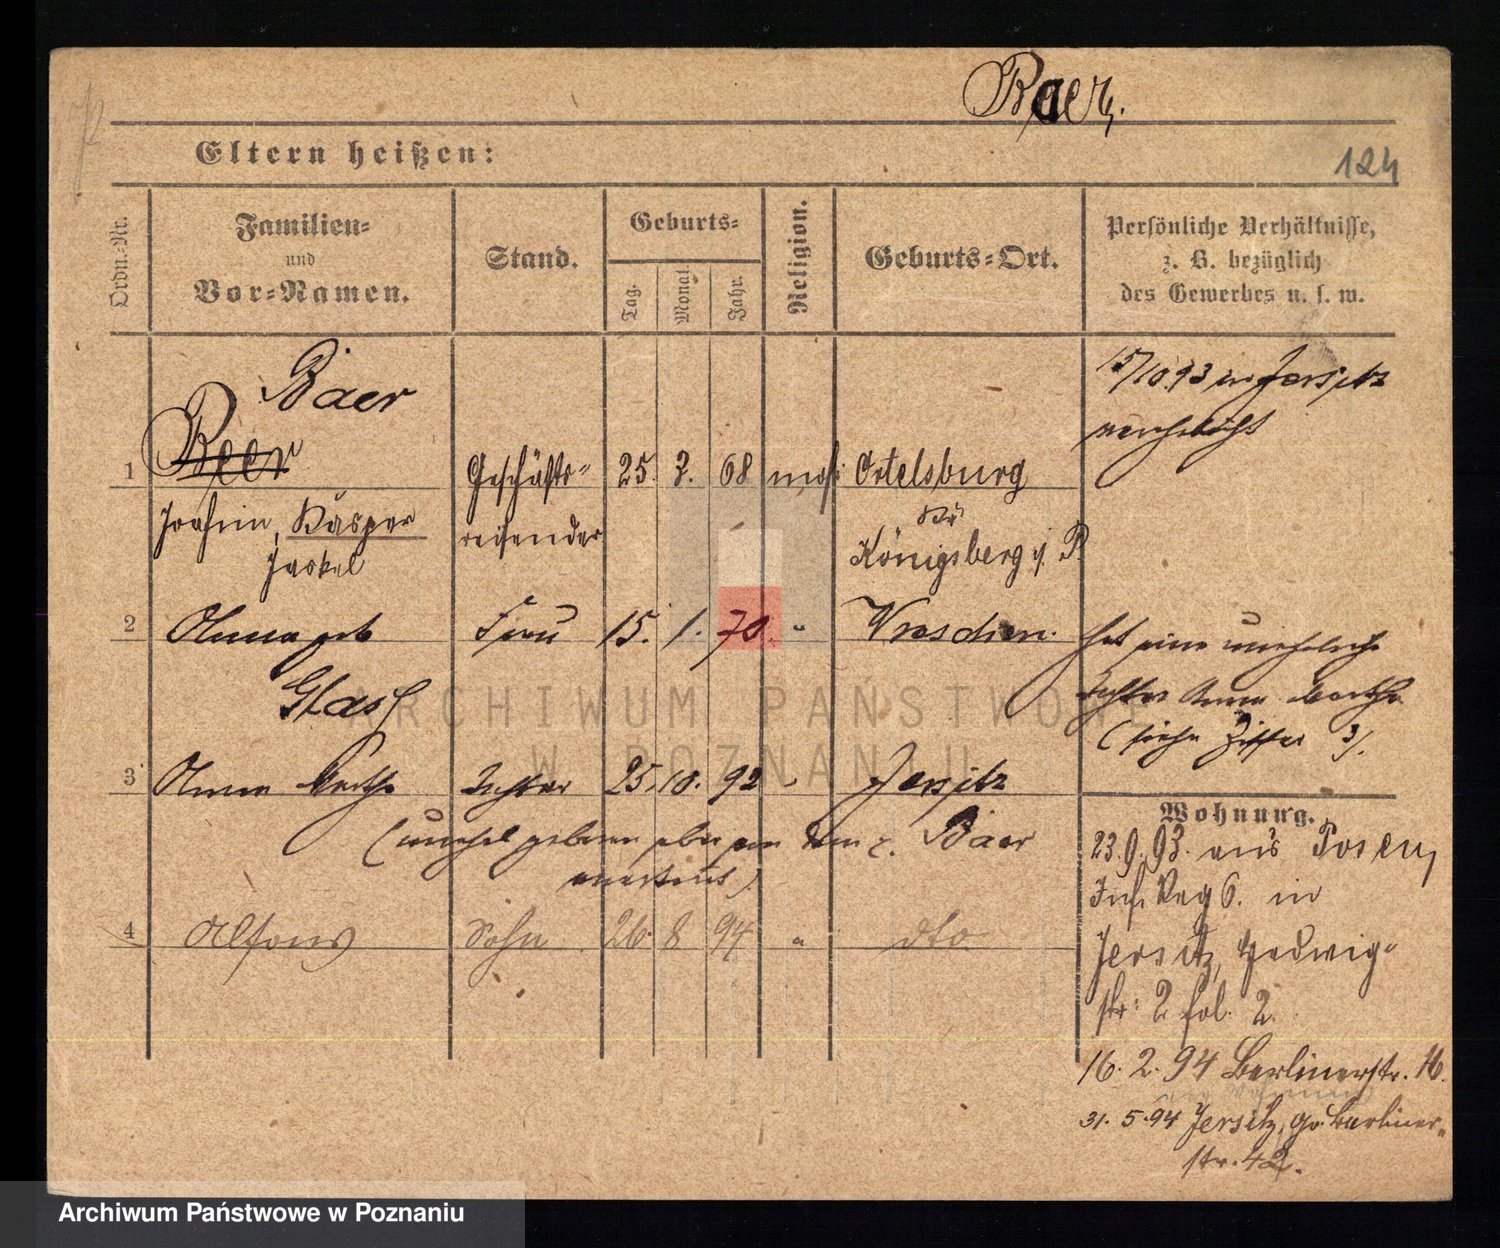 Baer.
124
Eltern heißen:
Ordn.-Nr.
Familien-
und
Vor-Namen.
Stand.
Geburts-
Tag.
Monat.
Jahr.
Religion.
Geburts-Ort.
Persönliche Verhältnisse,
z. B. bezüglich
des Gewerbes u. s. w.
Baer
15/10.93 in Jersitz
1 Beer Geschäfts- 25. 3. 68 mos. Ortelsburg
Joachim, Kaspar reisender Kr
Jackel Königsberg i. P.
2 Anna geb Frau 15. 1. 70. " Wreschen. hat eine uneheliche
Tochter Anna Bertha
(siehe Ziffer 3).
3 Anna Bertha Tochter 25. 10. 92 " Jersitz
(unehel geboren aber von dem z. Baer
anerkannt)
4 Alfons Sohn 26. 8 94 " dto
Wohnung.
23.9.93. aus Posen,
Inf. Reg 6. in
Jersitz, Hedwig-
str: 2 fol. 2.
16. 2. 94 Berlinerstr. 16.
31. 5. 94 Jersitz, Gr. Berliner-
str. 42.
ARCHIWUM PAŃSTWOWE
W POZNANIU
Archiwum Państwowe w Poznaniu